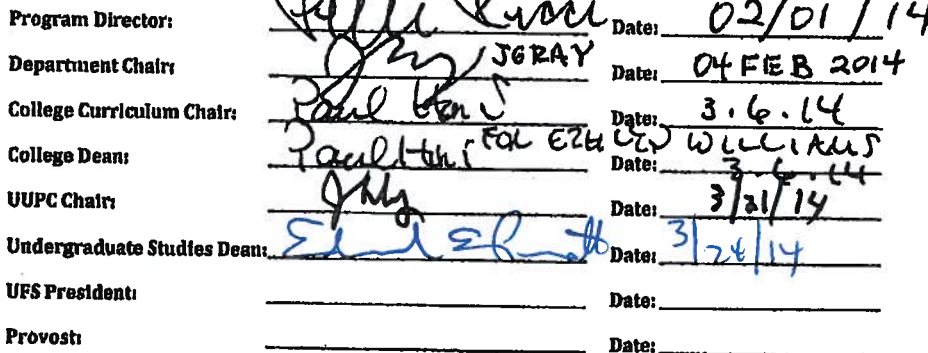 Program Director: Date: 02/01/14
Department Chair: JGRAY Date: 04 FEB 2014
College Curriculum Chair: Paul Date: 3.6.14
College Dean: Paul FOR WILLIAMS Date: 3.6.14
UUPC Chair: Date: 3/21/14
Undergraduate Studies Dean: Date: 3/24/14
UFS President: Date:
Provost: Date: